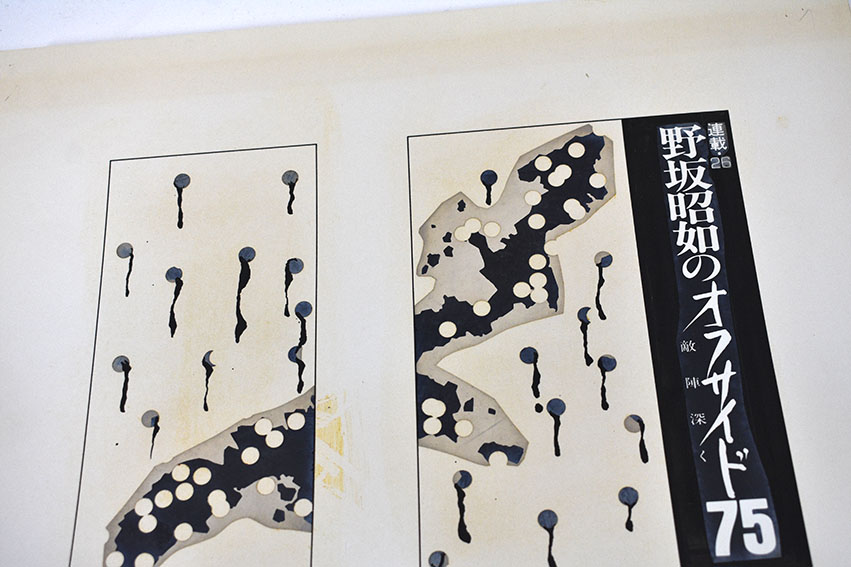 連載・26
野坂昭如のオフサイド75
敵陣深く